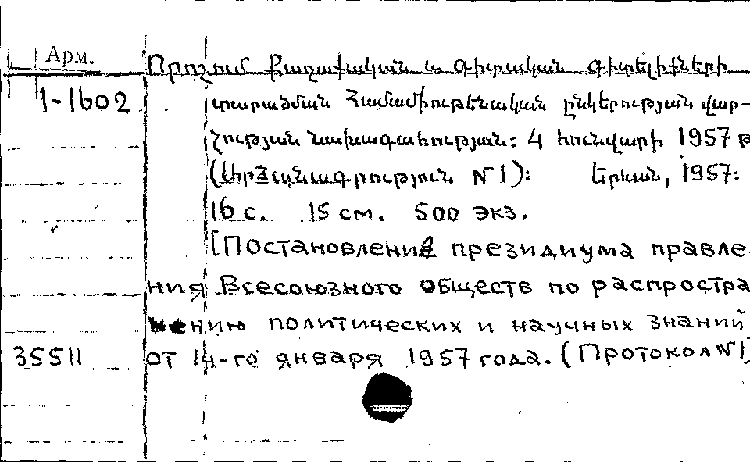 Арм.
Որոշում Քաղաքական և գիտական գիտելիքների
1-1602 տարածման Համամիութենական ընկերության վար-
չության նախագահության: 4 հունվարի 1957 թ
(Արձանագրություն №1): Երևան, 1957:
16 с. 15 см. 500 экз.
[Постановление президиума правле-
ния Всесоюзного обществ по распростра
нению политических и научных знаний
35511 от 14-го января 1957 года. (Протокол №1]